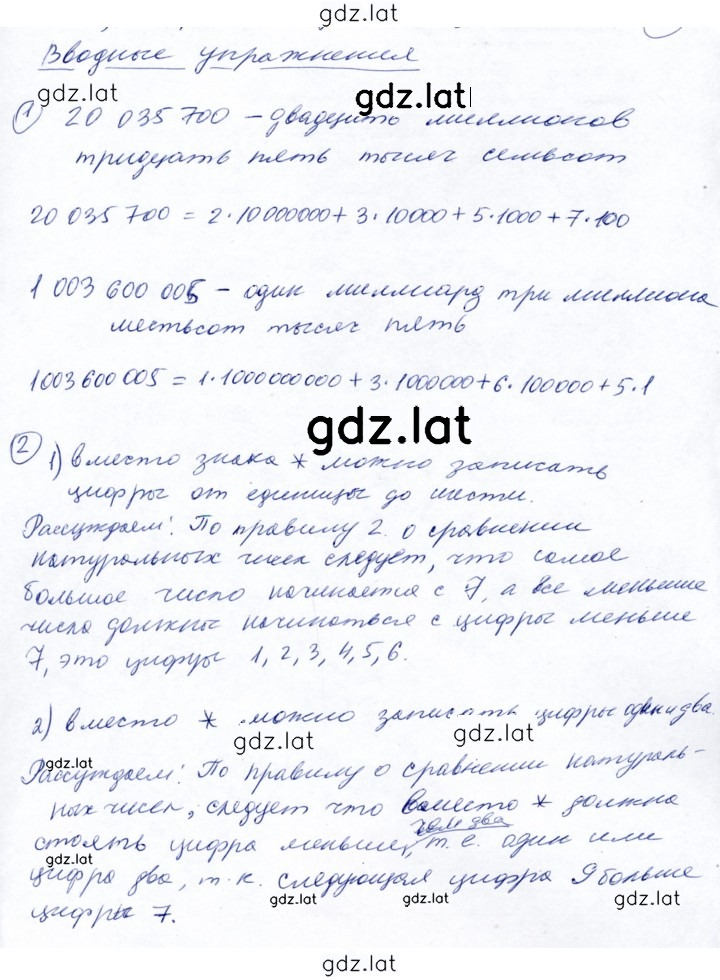 gdz.lat
Вводные упражнения
gdz.lat
gdz.lat
1 20 035 700 – двадцать миллионов
тридцать пять тысяч семьсот
20 035 700 = 2·10000000+3·10000+5·1000+7·100
1 003 600 005 – один миллиард три миллиона
шестьсот тысяч пять
1003600005 = 1·1000000000+3·1000000+6·100000+5·1
gdz.lat
2 1) вместо знака * можно записать
цифры от единицы до шести.
Рассуждаем: По правилу 2. о сравнении
натуральных чисел следует, что самое
большое число начинается с 7, а все меньшие
числа должны начинаться с цифры меньше
7, это цифры 1, 2, 3, 4, 5, 6.
2) вместо * можно записать цифры один и два.
gdz.lat
gdz.lat
gdz.lat
Рассуждаем: По правилу о сравнении натураль-
ных чисел, следует что вместо * должна
чем два
стоять цифра меньше, т.е. один или
gdz.lat
цифра два, т.к. следующая цифра 9 больше
цифры 7.
gdz.lat
gdz.lat
gdz.lat
gdz.lat